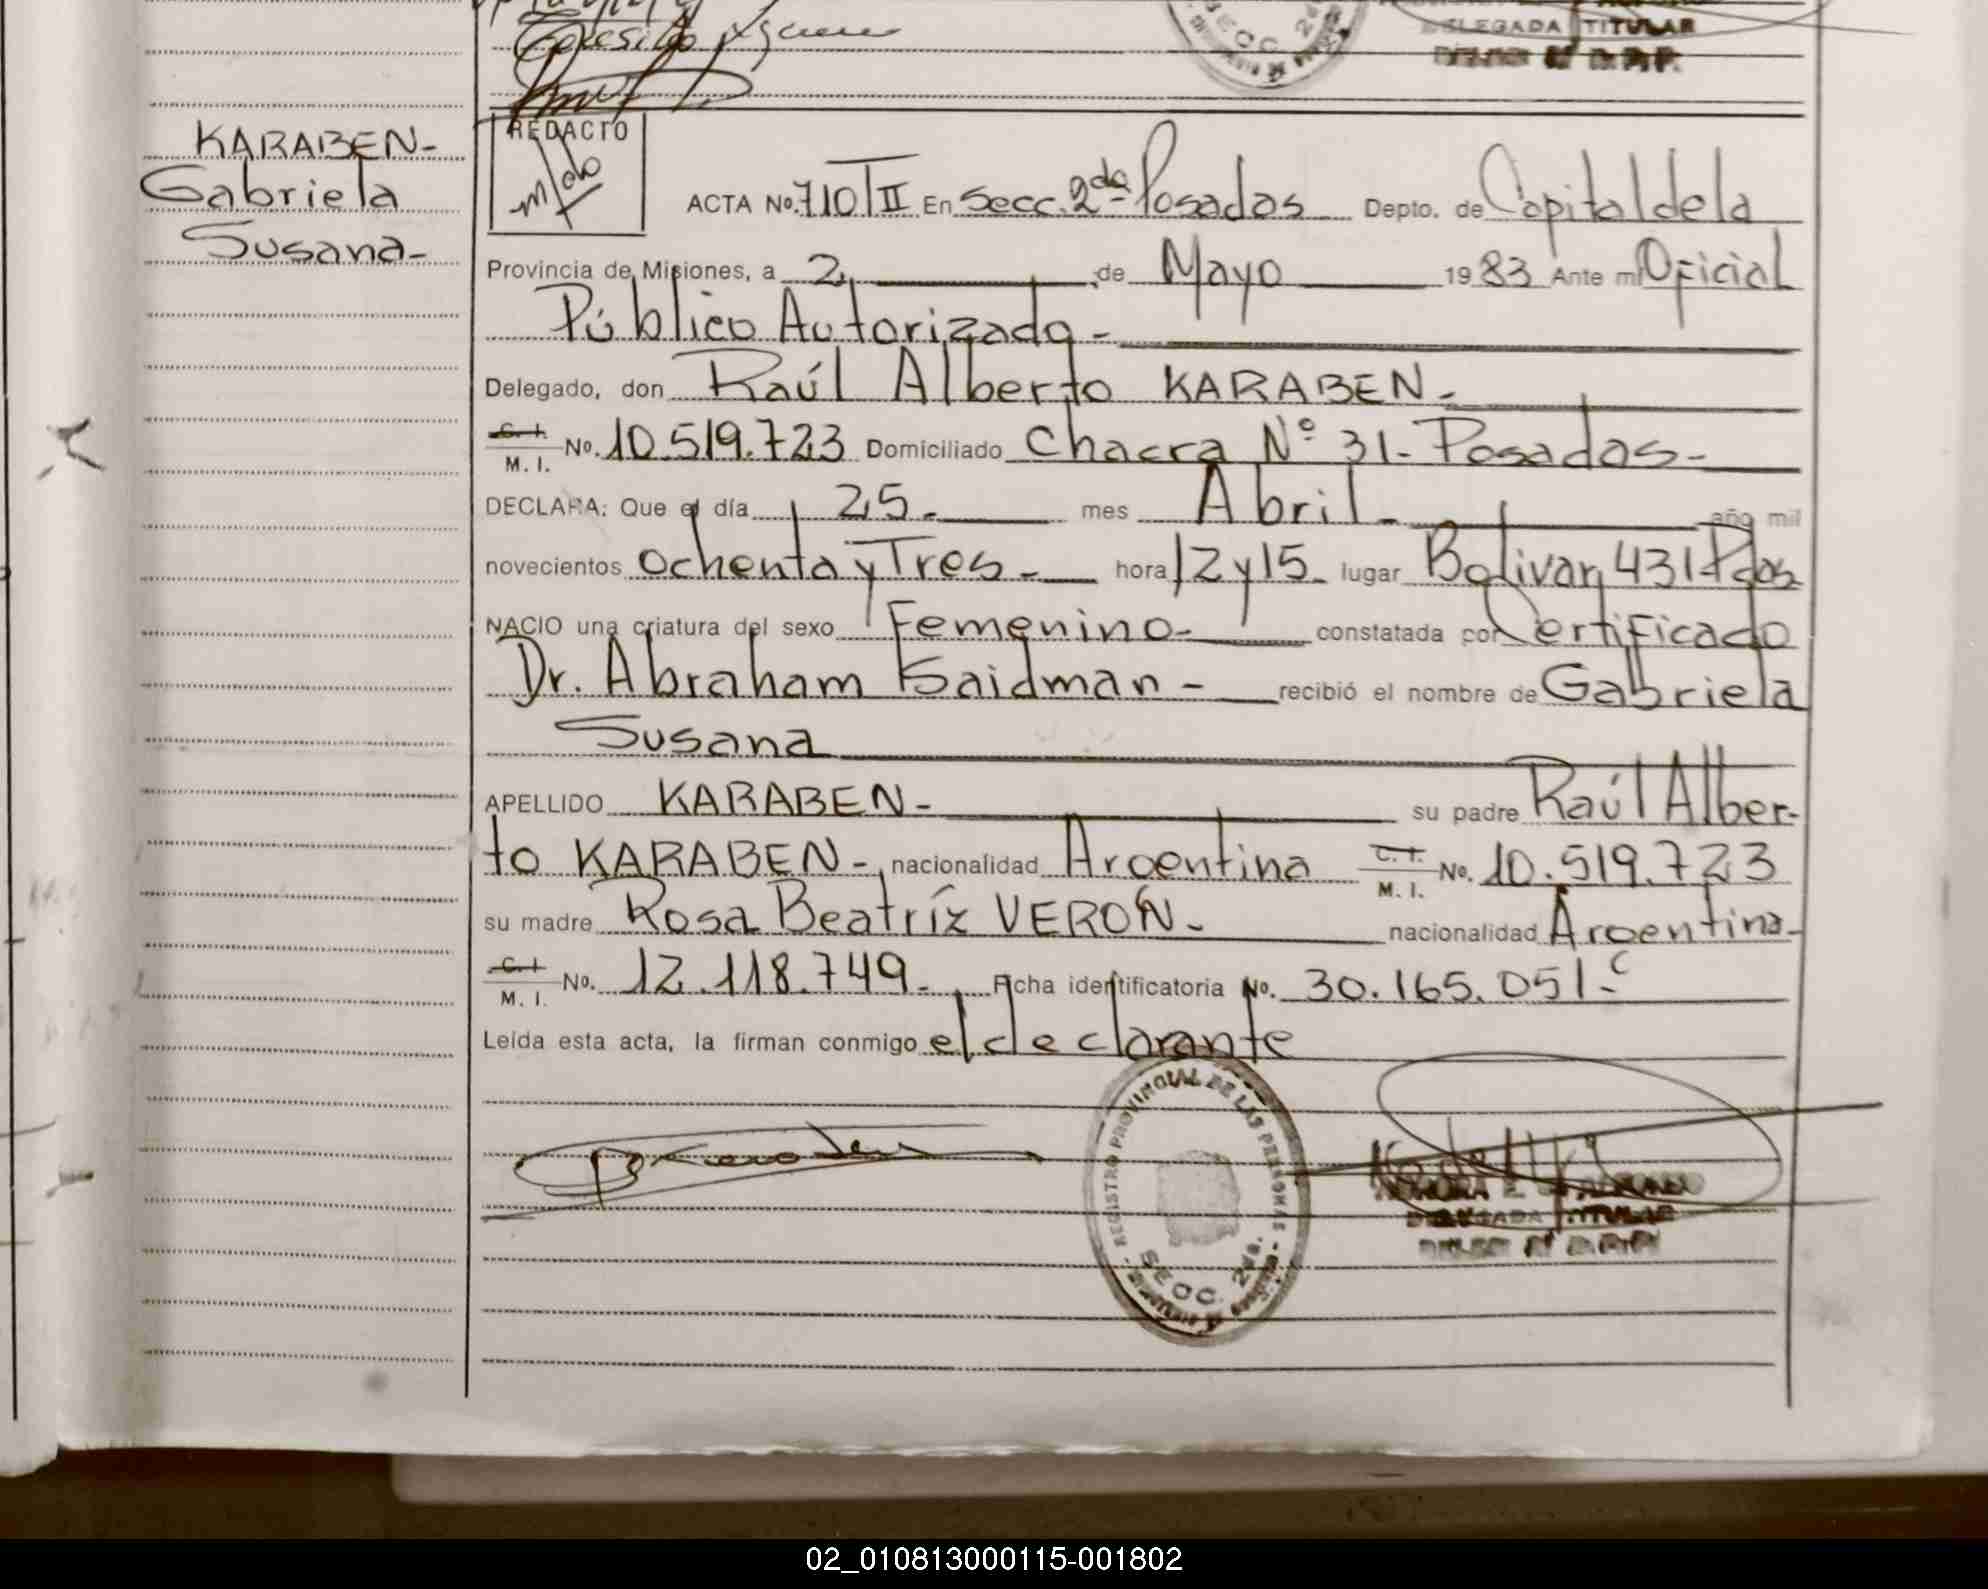 DELEGADA TITULAR
SECC. 2da
KARABEN-
Gabriela
Susana-
REDACTO
ACTA No. 710/II En Secc. 2da- Posadas Depto. de Capital de la
Provincia de Misiones, a 2 de Mayo 1983 Ante mi Oficial
Público Autorizado-
Delegado, don Raúl Alberto KARABEN-
C. I.
M. I. No. 10.519.723 Domiciliado Chacra Nº 31- Posadas-
DECLARA: Que el día 25- mes Abril- año mil
novecientos ochenta y Tres- hora 12 y 15- lugar Bolivar 431-Pdas-
NACIO una criatura del sexo Femenino- constatada por Certificado
Dr. Abraham Kaidman- recibió el nombre de Gabriela
Susana
APELLIDO KARABEN- su padre Raúl Alber-
to KARABEN- nacionalidad Argentina C. I. M. I. No. 10.519.723
su madre Rosa Beatríz VERÓN- nacionalidad Argentina-
C. I.
M. I. No. 12.118.749- Ficha identificatoria No. 30.165.051-
Leída esta acta, la firman conmigo el declarante
REGISTRO PROVINCIAL DE LAS PERSONAS
SECC. 2da.
DELEGADA TITULAR
02_010813000115-001802